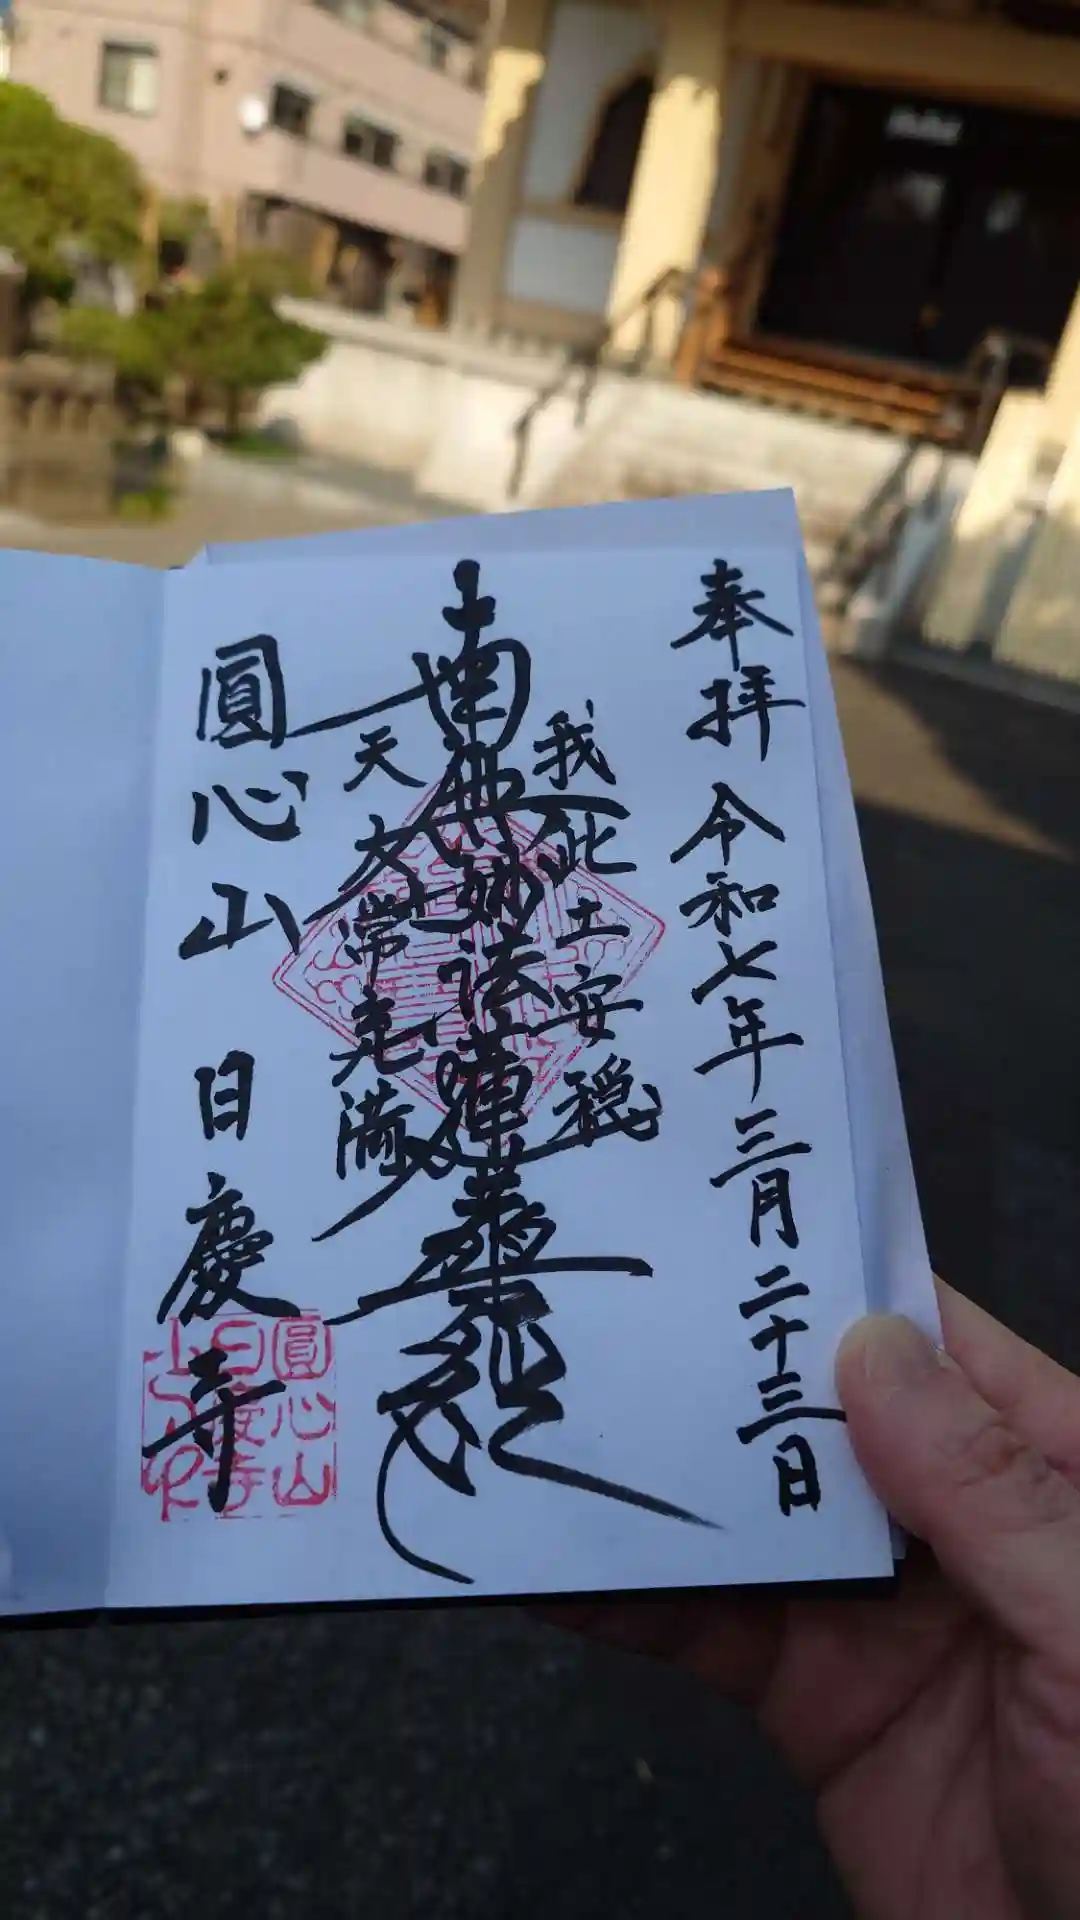 奉拝 令和七年三月二十三日
我此土安穏
南無妙法蓮華經
天人常充満
圓心山 日慶寺
圓心山
日慶寺